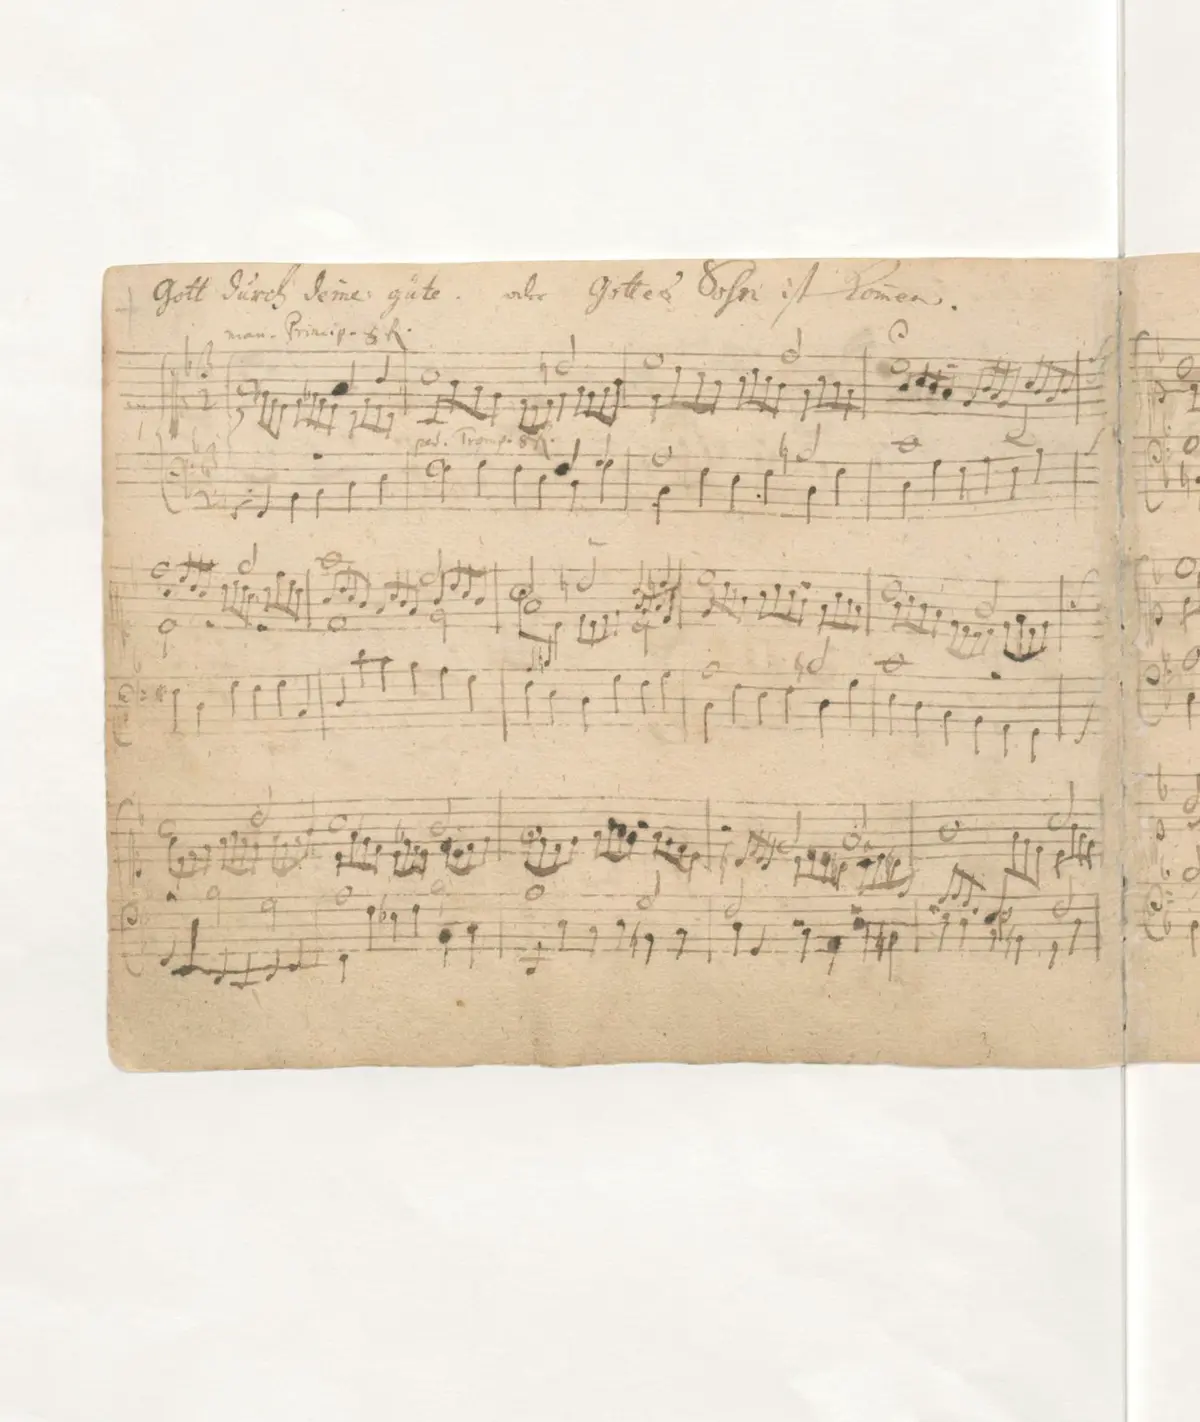 Gott durch deine güte. oder Gottes Sohn ist kom̄en.
man. Princip. 8 F.
ped. Tromp. 8 F.